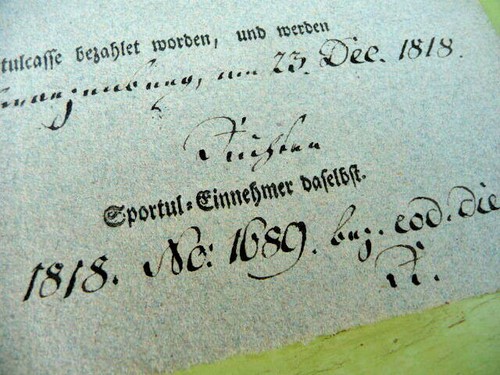 tulcasse bezahlet worden, und werden
am 23. Dec. 1818.
Sportul-Einnehmer daselbst.
1818. No: 1689. bez. eod. die
R.